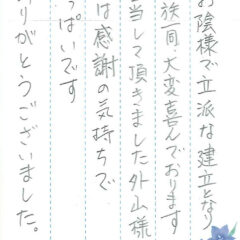 お陰様で立派な建立となり
族一同、大変喜んでおります
当して頂きました外山様
は感謝の気持ちで
っぱいです
りがとうございました。